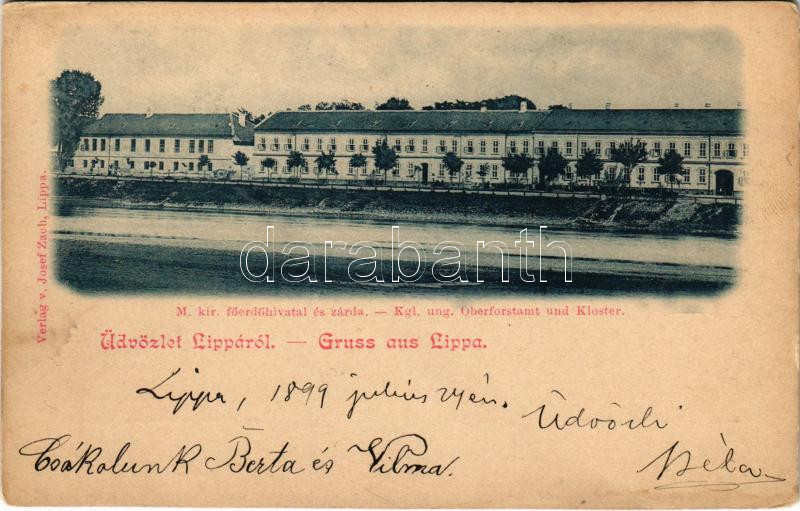 Verlag v. Josef Zach, Lippa.
darabanth
M. kir. főerdőhivatal és zárda. — Kgl. ung. Oberforstamt und Kloster.
Üdvözlet Lippáról. — Gruss aus Lippa.
Lippa, 1899 julius 24én.
Üdvözli
Csókolunk Berta és Vilma.
Béla